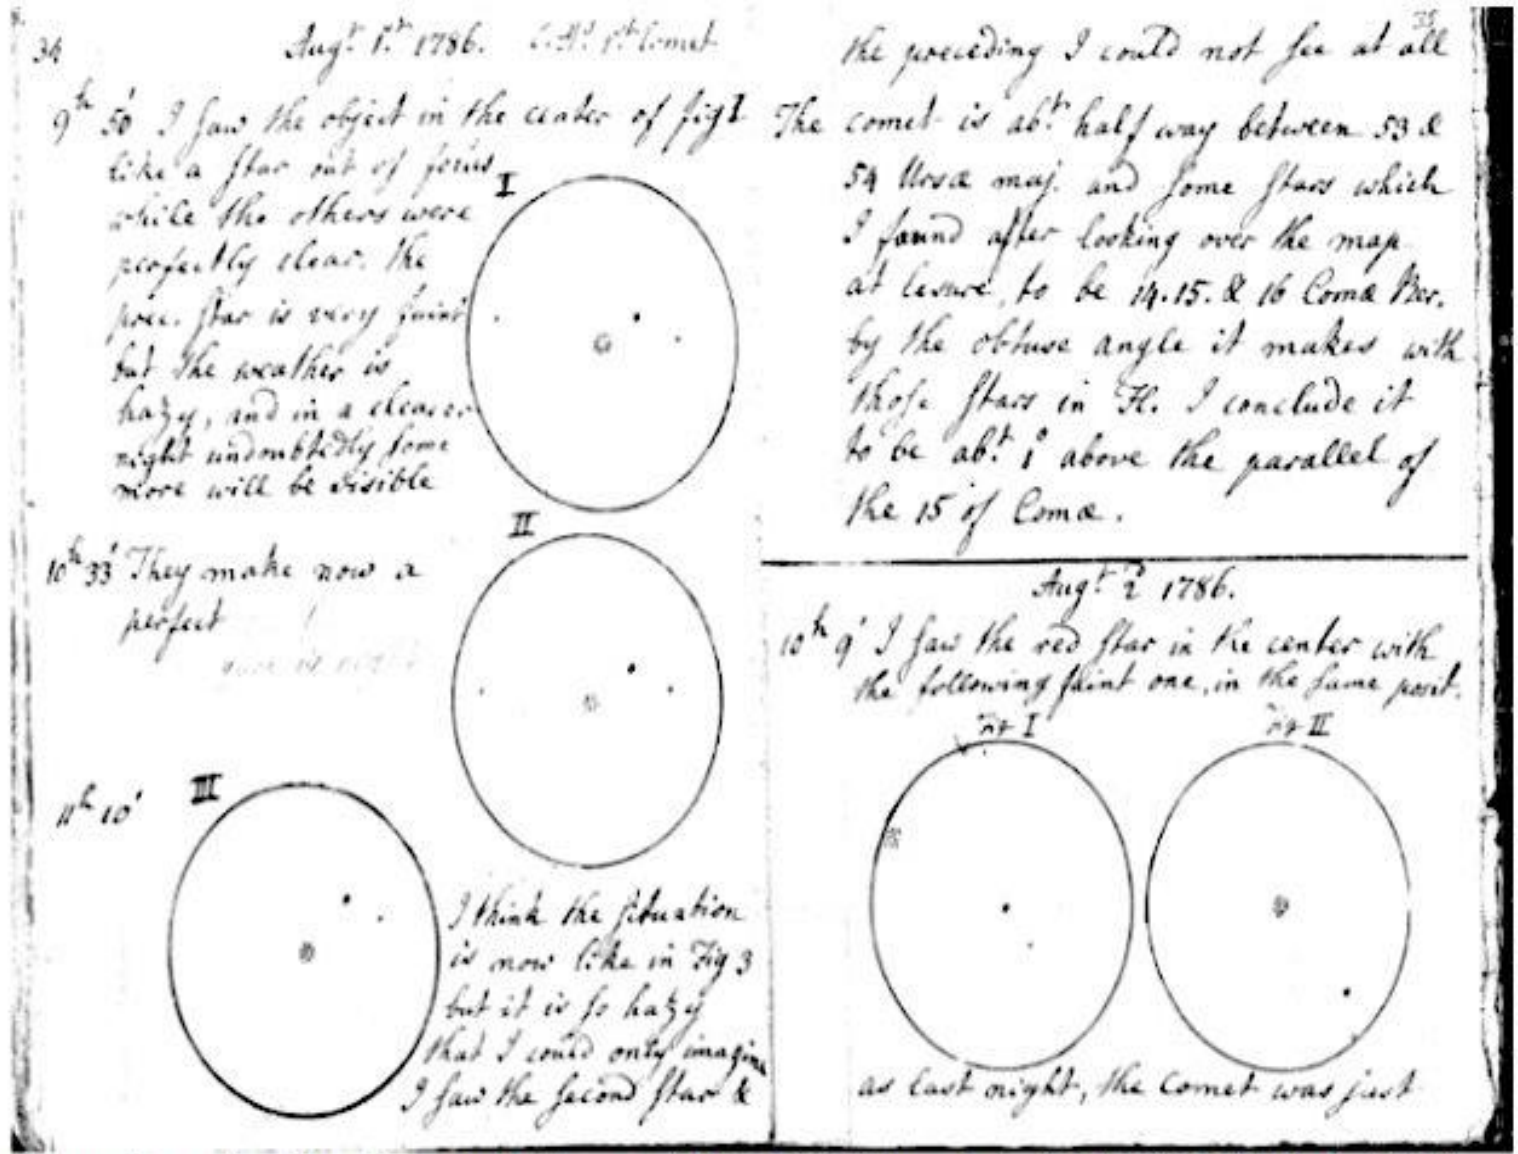 34
Augt. 1st. 1786. C.H's 1st Comet
9h 50' I saw the object in the center of fig I
like a star out of focus
while the others were
perfectly clear. the
prec. star is very faint
but the weather is
hazy, and in a clearer
night undoubtedly some
more will be visible
I
II
10h 33' They make now a
perfect
11h 10'
III
I think the situation
is now like in Fig 3
but it is so hazy
that I could only imagine
I saw the second star &
35
the preceding I could not see at all
The comet is abt. half way between 53 &
54 Ursæ maj. and some stars which
I found after looking over the map
at lesure, to be 14.15. & 16 Comæ Ber.
by the obtuse angle it makes with
those stars in Fl. I conclude it
to be abt. 1° above the parallel of
the 15 of Comæ.
Augt. 2d 1786.
10h 9' I saw the red star in the center with
the following faint one, in the same posit.
I
II
as last night, the Comet was just